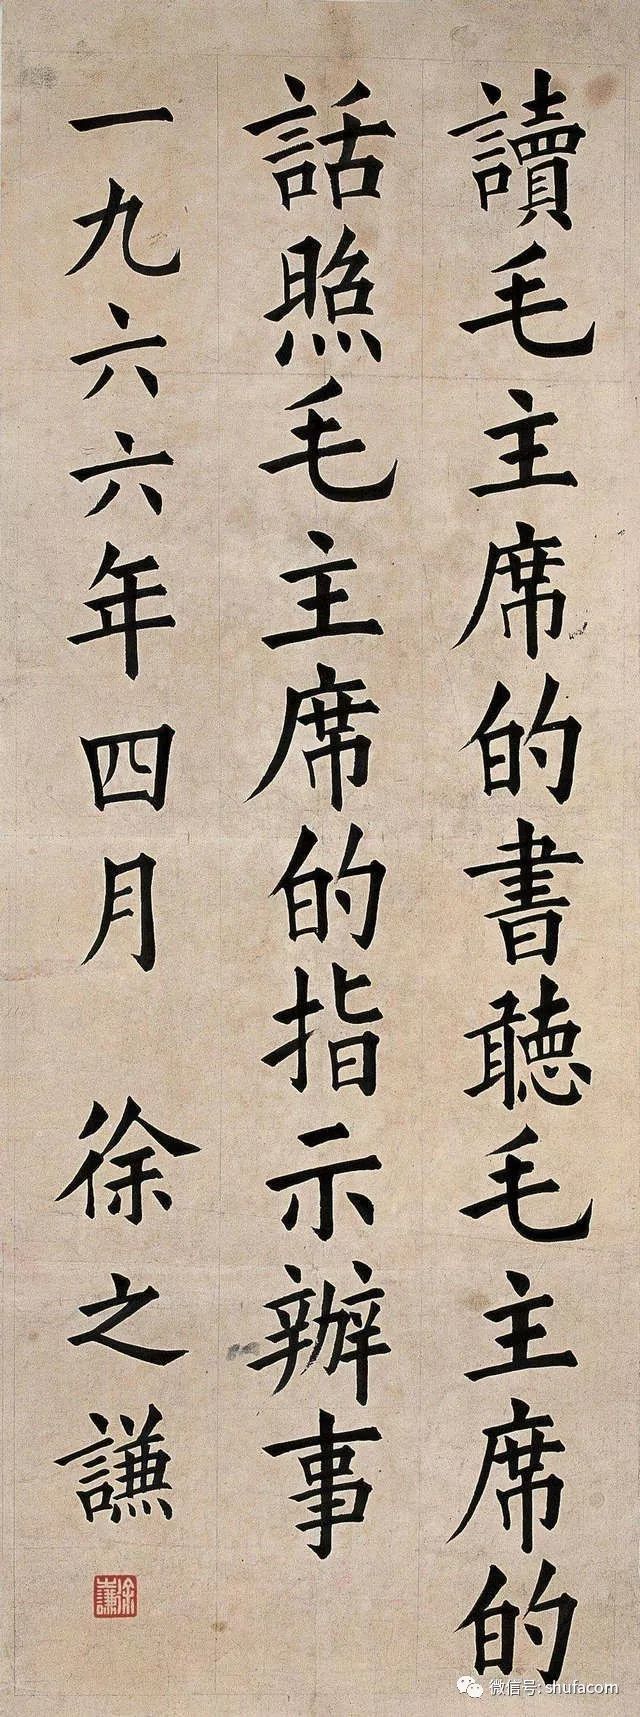 讀毛主席的書聽毛主席的
話照毛主席的指示辦事
一九六六年四月 徐之謙
徐之謙
微信号: shufacom